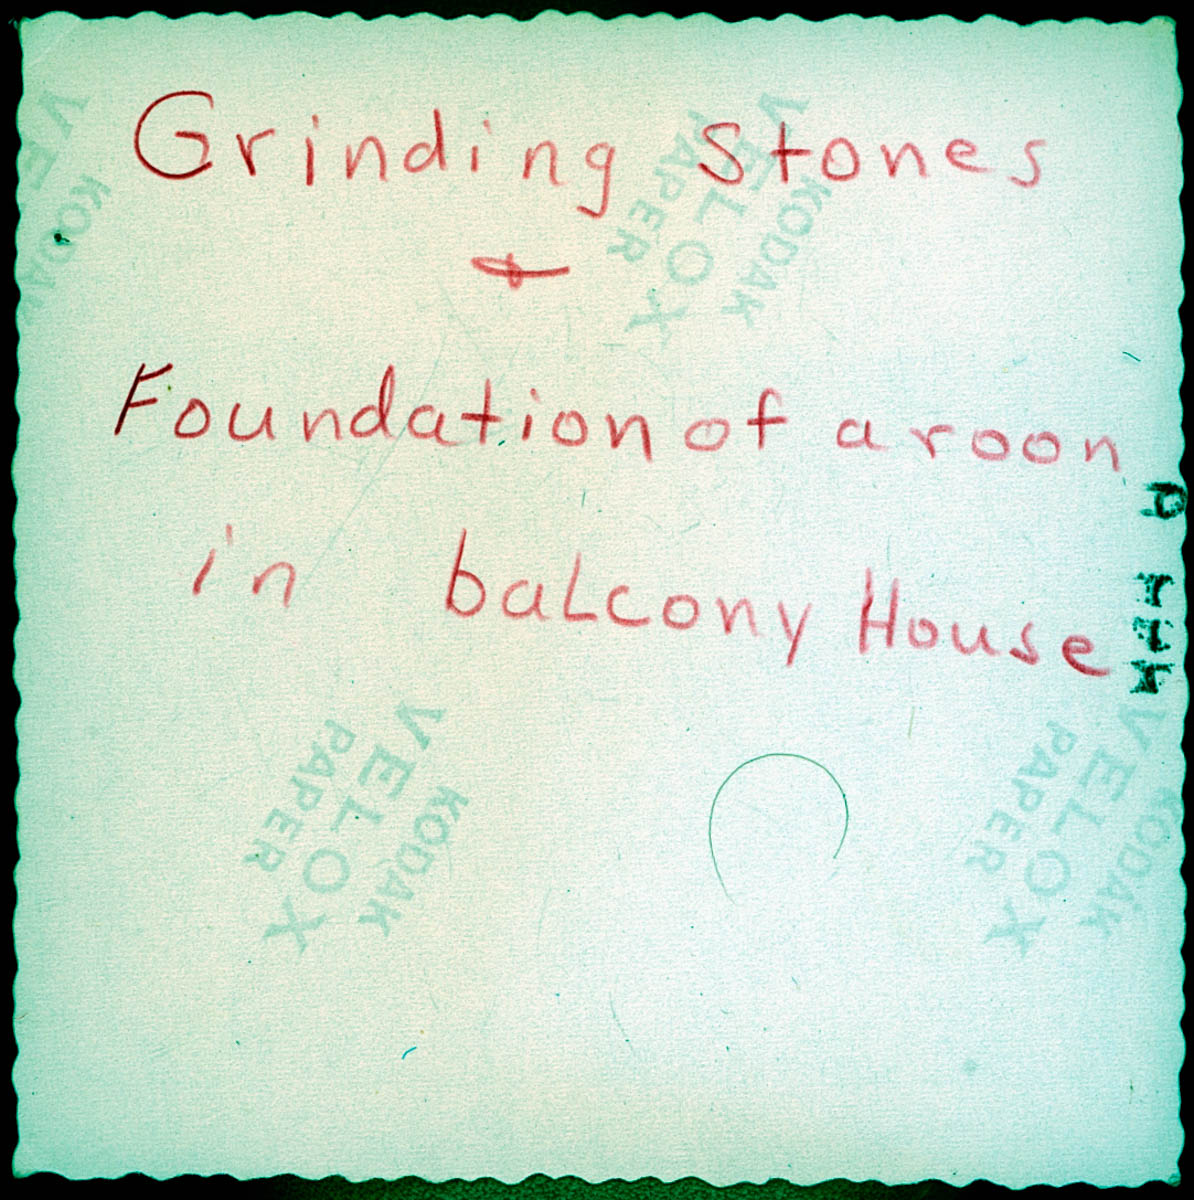 Grinding Stones
+
Foundation of a roon
in baLcony House
VELOX
KODAK
KODAK
VELOX
PAPER
KODAK
VELOX
PAPER
KODAK
VELOX
PAPER